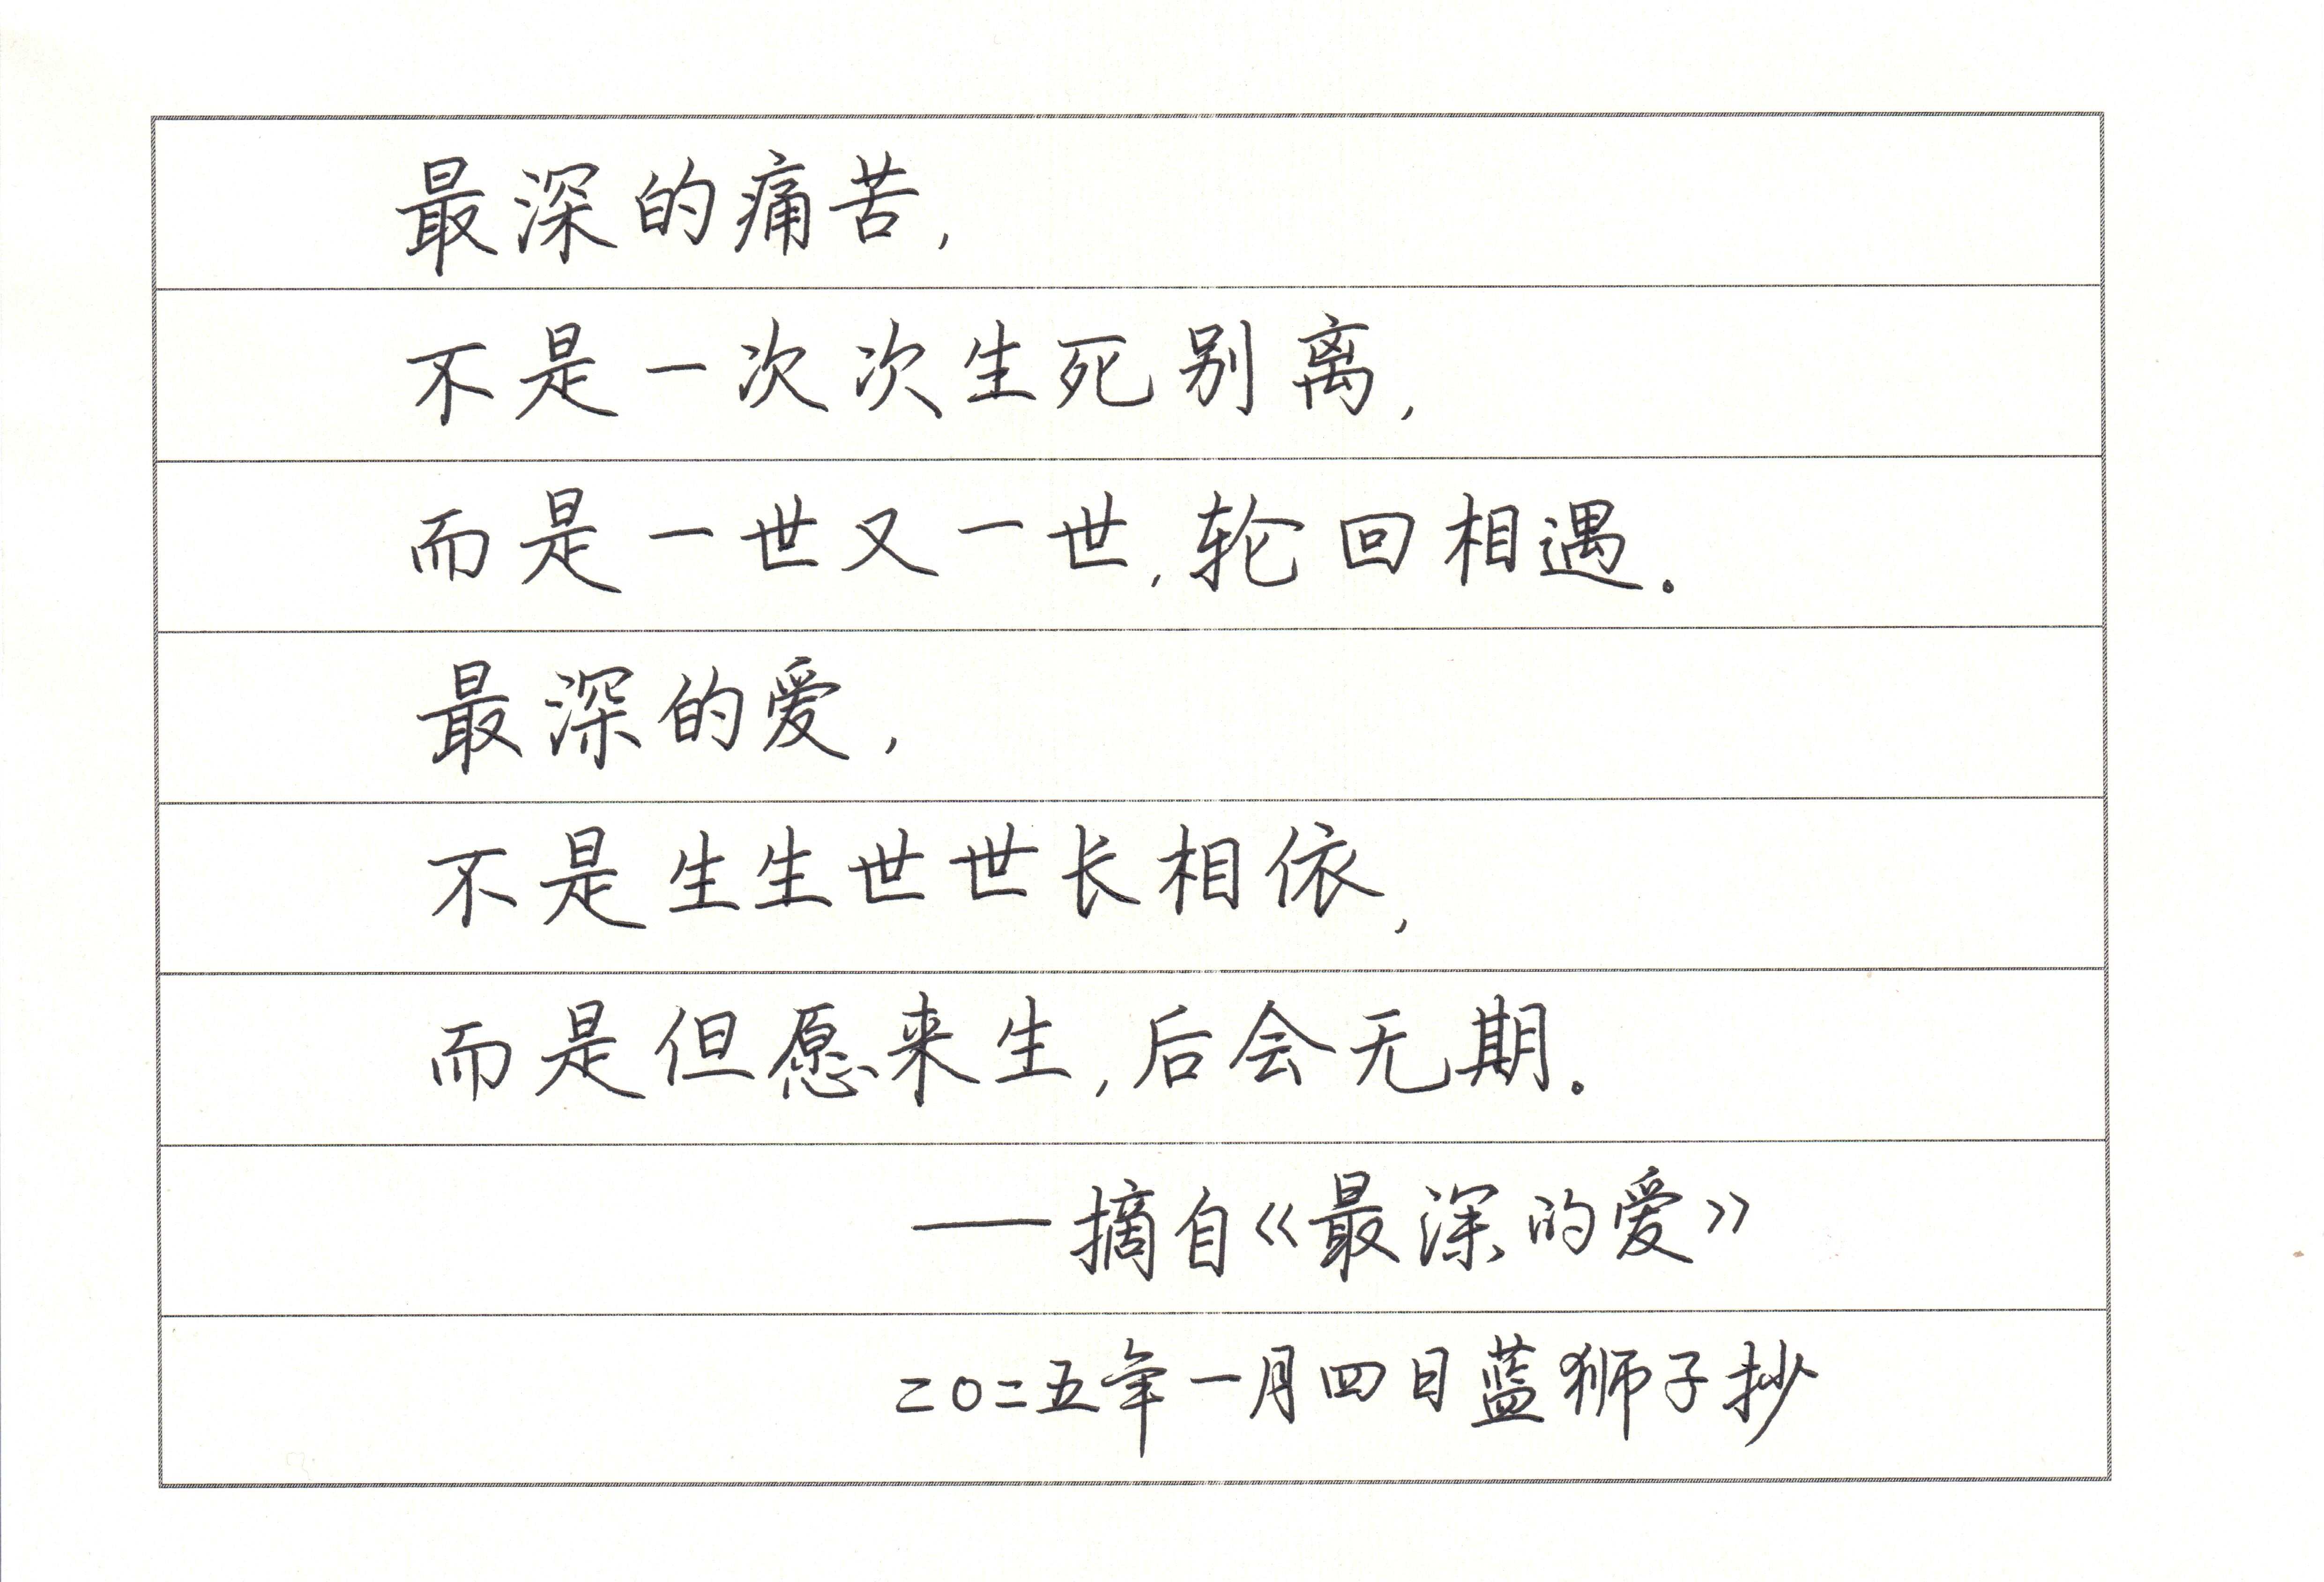 最深的痛苦,
不是一次次生死别离,
而是一世又一世,轮回相遇.
最深的爱,
不是生生世世长相依,
而是但愿来生,后会无期.
——摘自《最深的爱》
二〇二五年一月四日蓝狮子抄